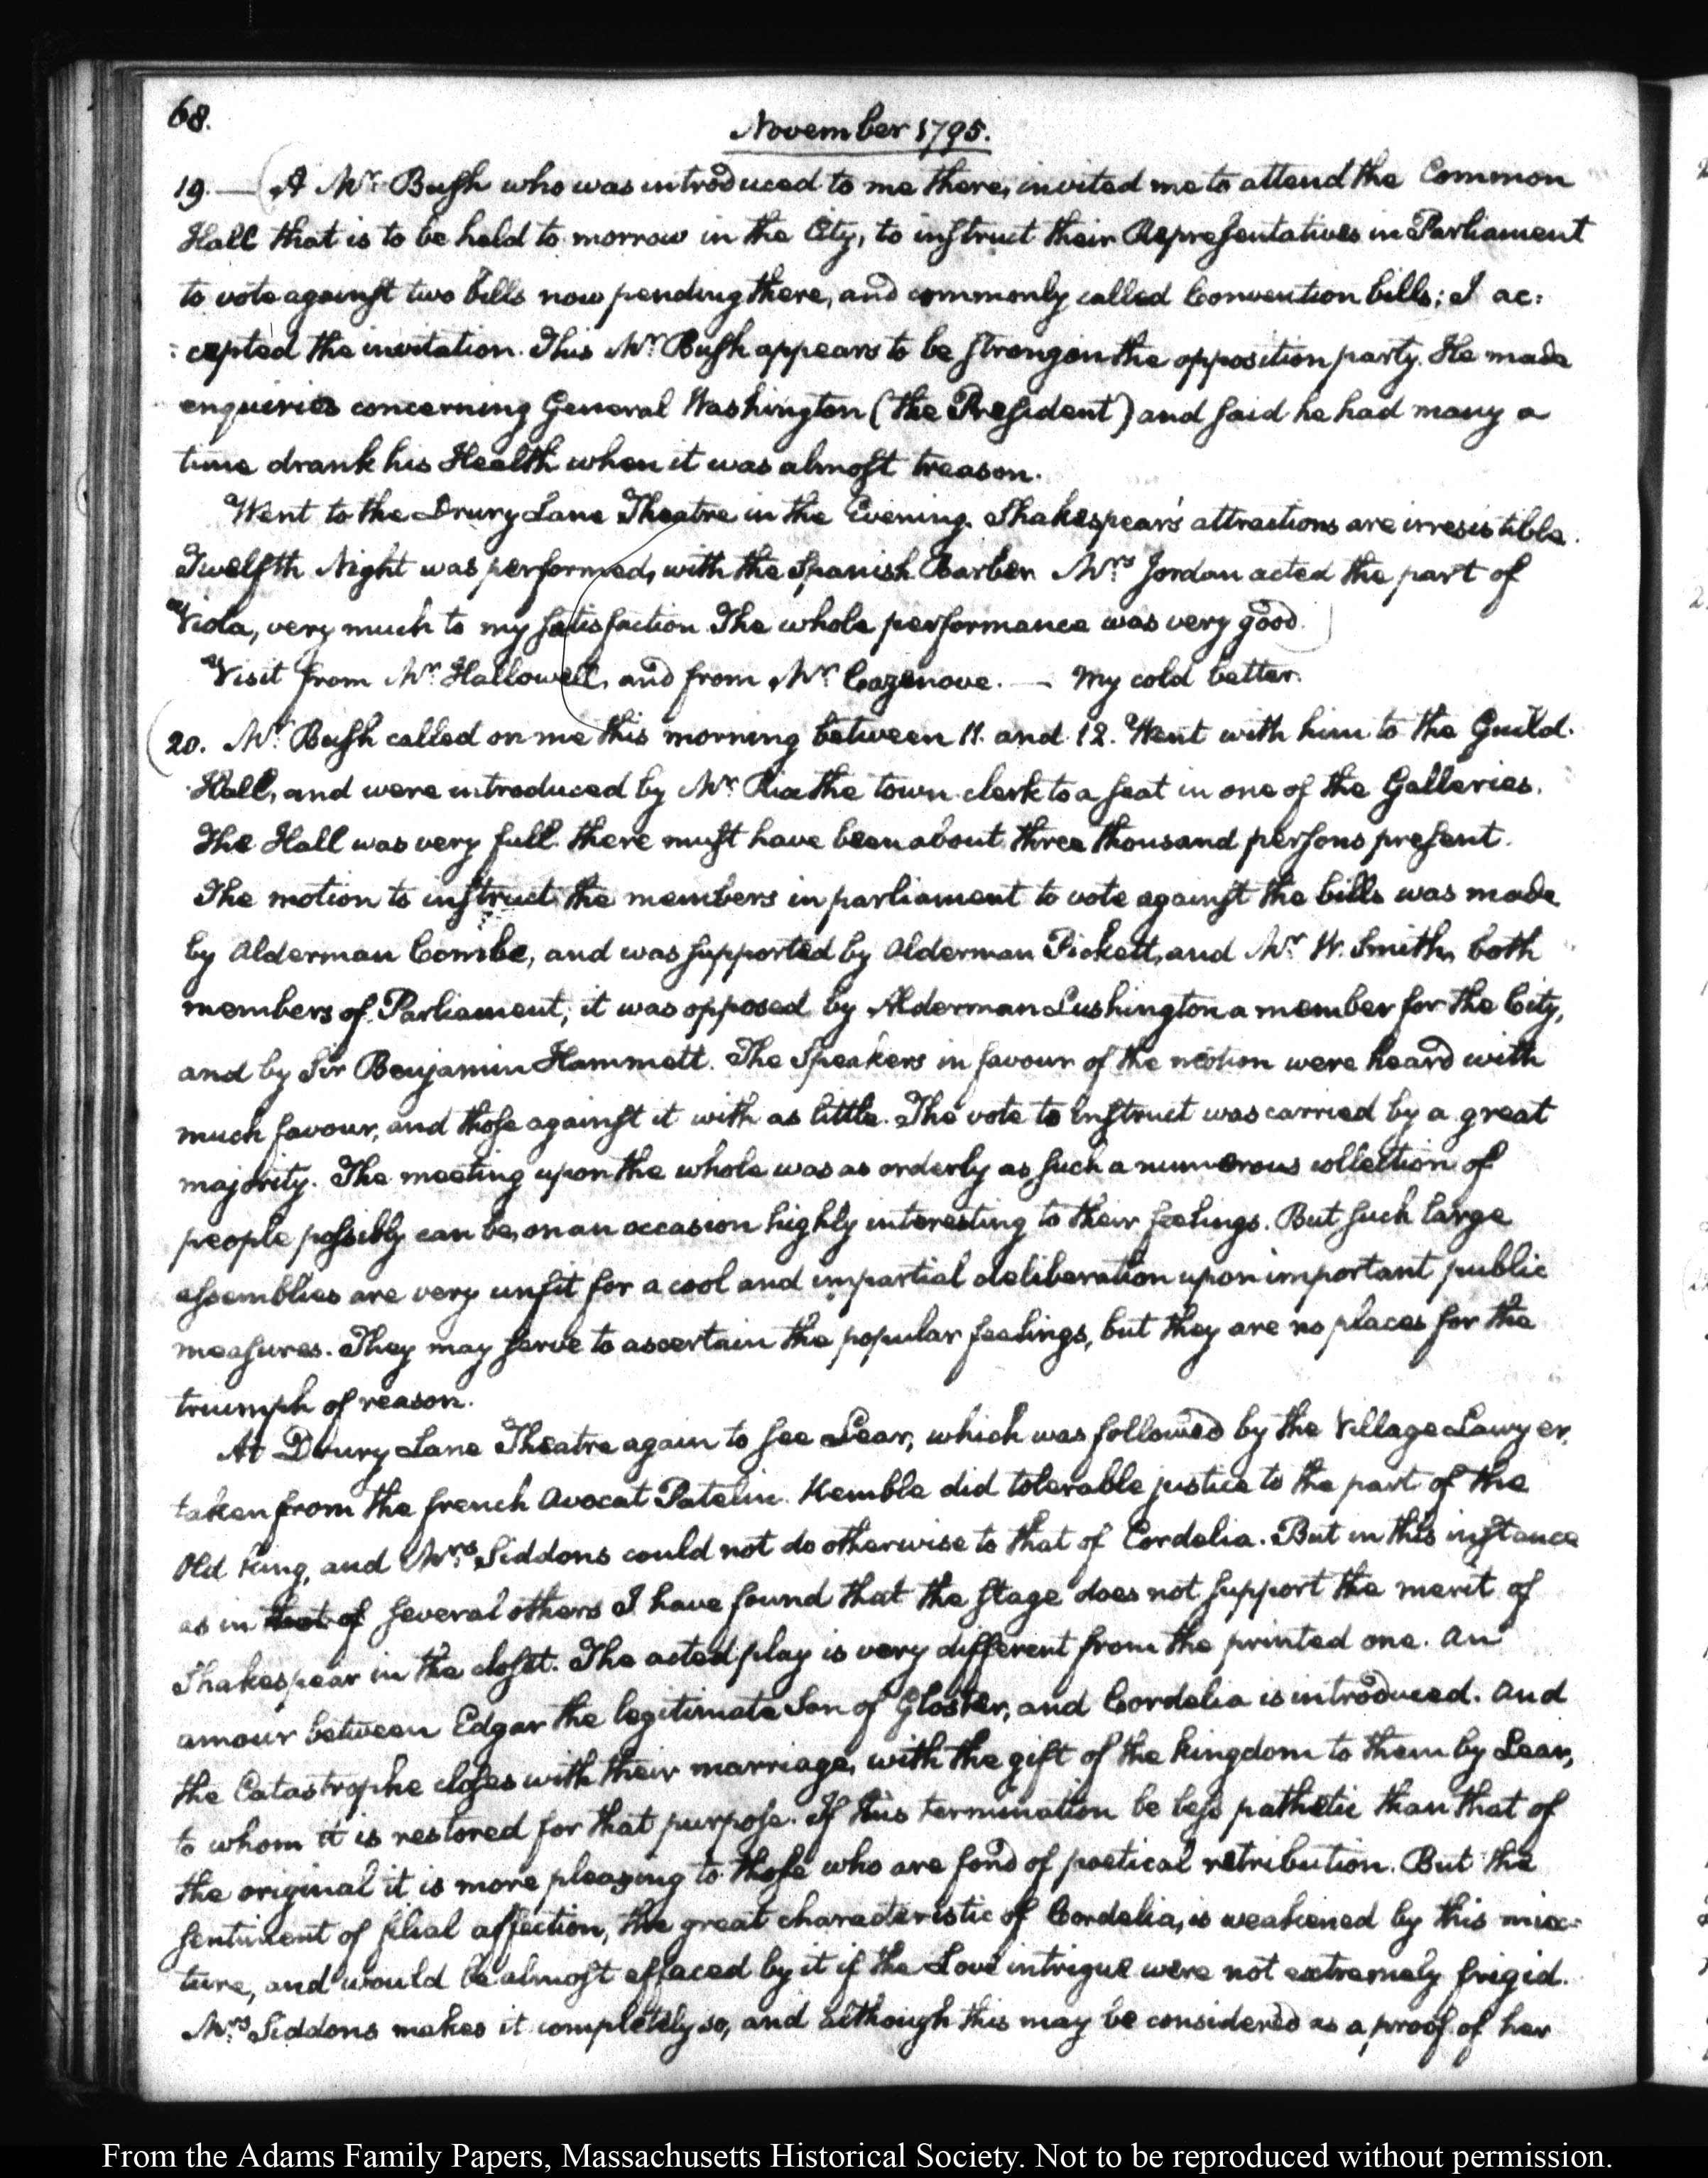 68.
November 1795.
19. — A Mr. Bush who was introduced to me there, invited me to attend the Common
Hall that is to be held to morrow in the City, to instruct their Representatives in Parliament
to vote against two bills now pending there, and commonly called Convention bills; I ac:
:cepted the invitation. This Mr. Bush appears to be strong on the opposition party. He made
enquiries concerning General Washington (the President) and said he had many a
time drank his Health when it was almost treason.
Went to the Drury Lane Theatre in the Evening. Shakespear's attractions are irresistible.
Twelfth Night was performed, with the Spanish Barber. Mrs. Jordan acted the part of
Viola, very much to my satisfaction. The whole performance was very good.
Visit from Mr. Hallowell, and from Mr. Cazenove. — My cold better.
20. Mr. Bush called on me this morning between 11. and 12. Went with him to the Guild-
Hall, and were introduced by Mr. Rix the town clerk to a seat in one of the Galleries.
The Hall was very full. there must have been about three thousand persons present.
The motion to instruct the members in parliament to vote against the bills was made
by Alderman Combe, and was supported by Alderman Pickett, and Mr. W. Smith, both
members of Parliament; it was opposed by Alderman Lushington a member for the City,
and by Sir Benjamin Hammett. The Speakers in favour of the motion were heard with
much favour, and those against it with as little. The vote to instruct was carried by a great
majority. The meeting upon the whole was as orderly as such a numerous collection of
people possibly can be, on an occasion highly interesting to their feelings. But such large
assemblies are very unfit for a cool and impartial deliberation upon important public
measures. They may serve to ascertain the popular feelings, but they are no places for the
triumph of reason.
At Drury Lane Theatre again to see Lear, which was followed by the Village Lawyer,
taken from the french Avocat Patelin. Kemble did tolerable justice to the part of the
Old King, and Mrs. Siddons could not do otherwise to that of Cordelia. But in this instance
as in that of several others I have found that the stage does not support the merit of
Shakespear in the closet. The acted play is very different from the printed one. An
amour between Edgar the legitimate Son of Gloster, and Cordelia is introduced. And
the Catastrophe closes with their marriage, with the gift of the kingdom to them by Lear,
to whom it is restored for that purpose. If this termination be less pathetic than that of
the original it is more pleasing to those who are fond of poetical retribution. But the
sentiment of filial affection, the great characteristic of Cordelia, is weakened by this mix-
ture, and would be almost effaced by it if the Love intrigue were not extremely frigid.
Mrs. Siddons makes it completely so, and although this may be considered as a proof of her
From the Adams Family Papers, Massachusetts Historical Society. Not to be reproduced without permission.